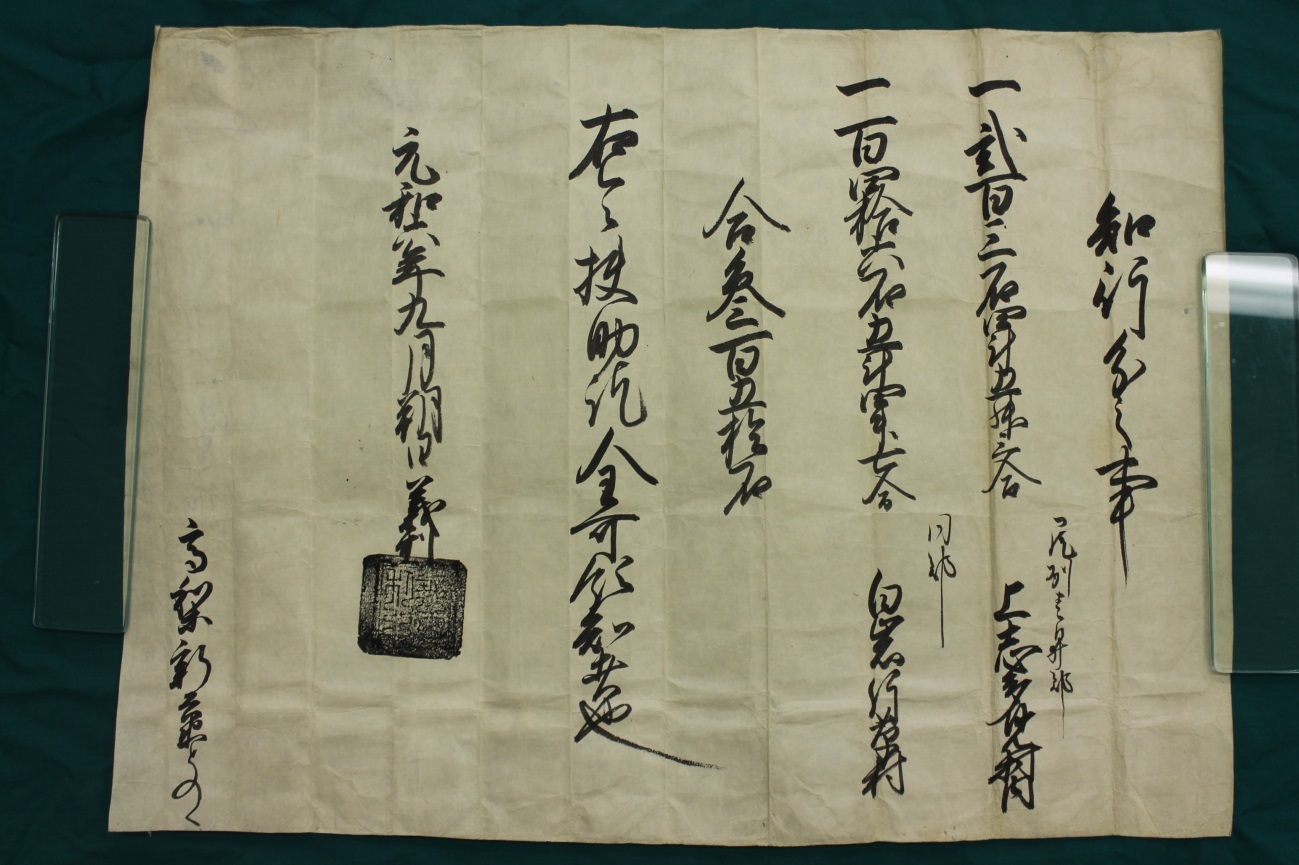 知行分之事
一 弐百三石四斗五升三合
尾州春日井郡
上志段味村内
一 百四拾六石五斗四升七合
同郡
白岩村
合参百五拾石
右之扶助訖全可領知者也
元和六年九月朔日 義利
高梨新蔵とのへ